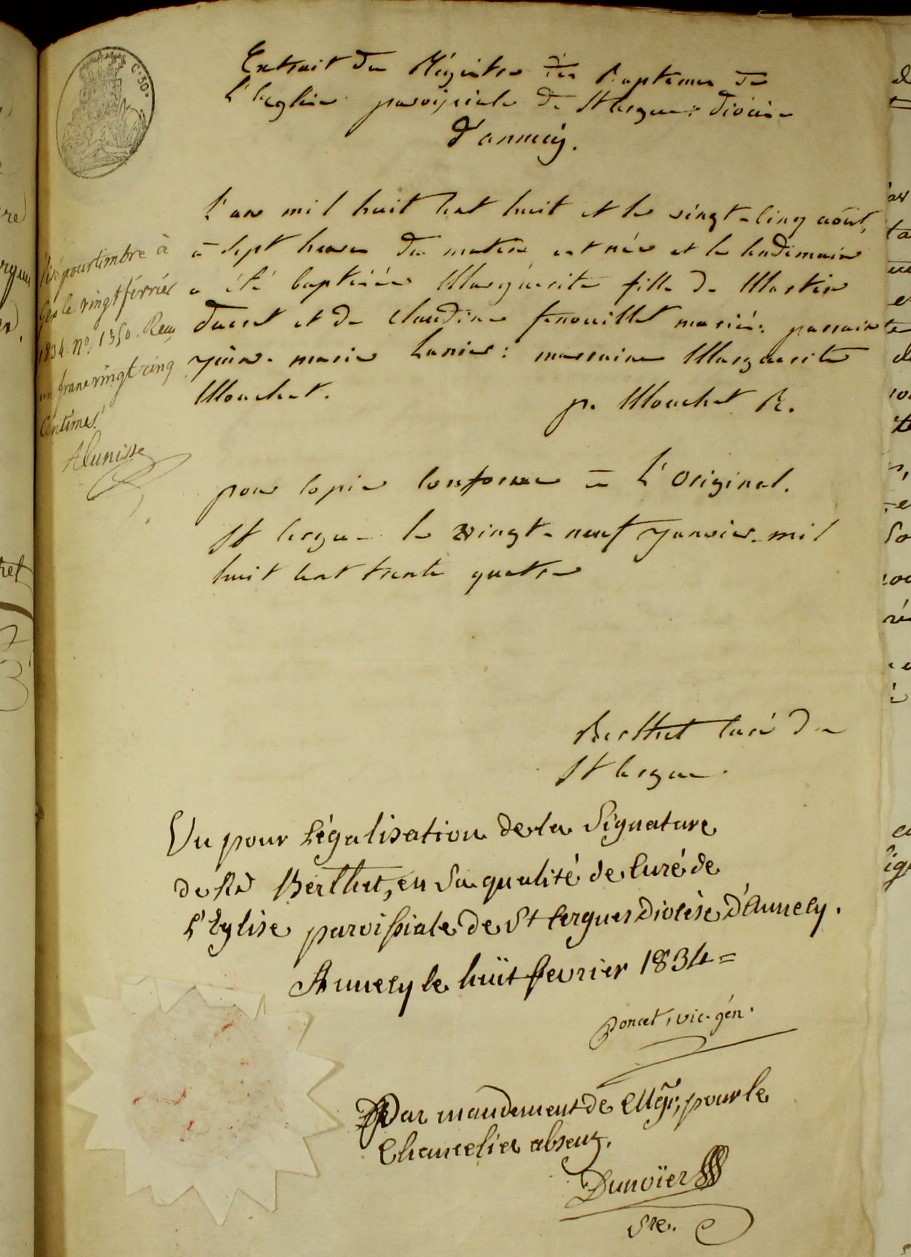 C.50e
Extrait du Régistre des Baptemes de
l'eglise paroissiale de St Cergue: diocèse
d'annecy.
L'an mil huit cent huit et le vingt-cinq août,
à sept heures du matin est née et le lendemain
a été baptisée Marguerite fille de Martin
Ducret et de Claudine fenouillet mariés: parrain
marie: marraine Marguerite
Mouchet. p. Mouchet R.
Visé pour timbre à
Gex le vingt février
1834. No. 1350. Reçu
un franc vingt cinq
Centimes
pour copie conforme à L'Original.
St Cergue le vingt-neuf janvier mil
huit cent trente quatre
Berthet curé de
St Cergue.
Vu pour Légalisation de la Signature
de Rd Berthet, en Sa qualité de Curé de
L'Eglise paroissiale de St Cergues Diocèse d'Annecy.
Annecy le huit fevrier 1834=
Poncet, vic. gén.
Par mandement de Mgr, pour le
Chancelier absent.
Dunoïer
Sre.